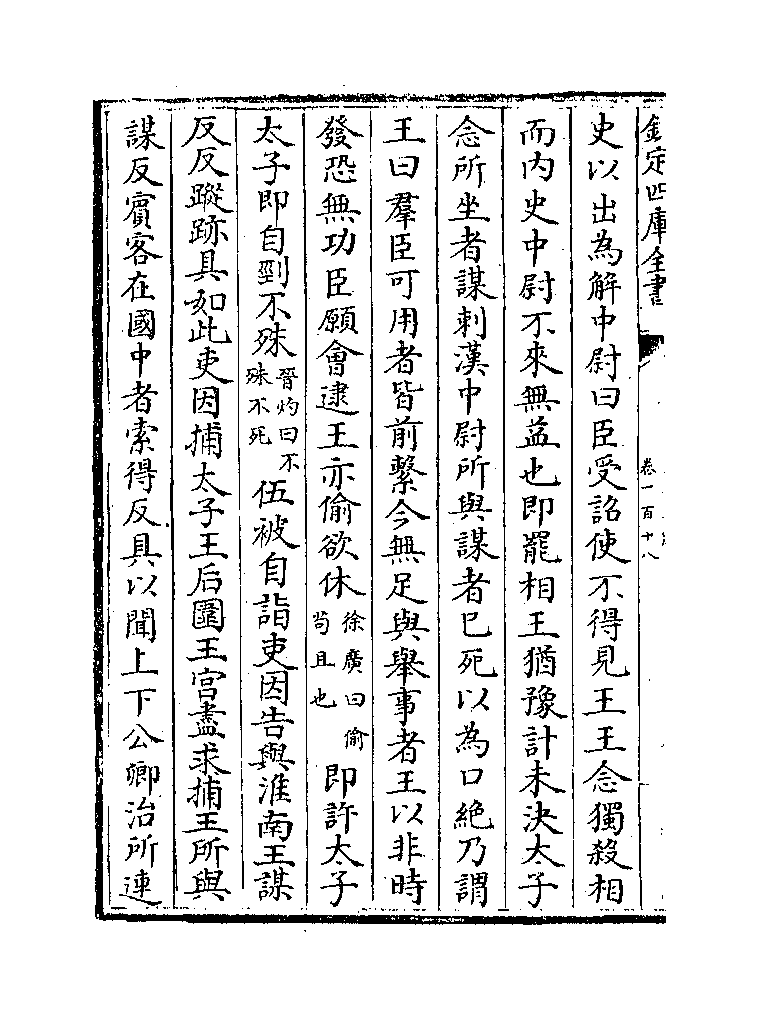 欽定四庫全書
卷一百十八
史以出為解中尉曰臣受詔使不得見王王念獨殺相
而内史中尉不來無益也即罷相王猶豫計未決太子
念所坐者謀刺漢中尉所與謀者已死以為口絶乃謂
王曰羣臣可用者皆前繫今無足與舉事者王以非時
發恐無功臣願會逮王亦偷欲休徐廣曰偷苟且也即許太子
太子即自剄不殊晉灼曰不殊不死伍被自詣吏因告與淮南王謀
反反蹤跡具如此吏因捕太子王后圍王宮盡求捕王所與
謀反賓客在國中者索得反具以聞上下公卿治所連